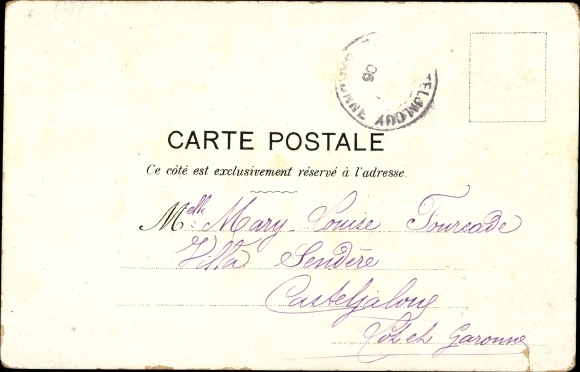 CASTELJALOUX
GARONNE
06
CARTE POSTALE
Ce côté est exclusivement réservé à l'adresse.
Melle Mary-Louise Fourcade
Villa Sendère
Casteljaloux
Lot et Garonne